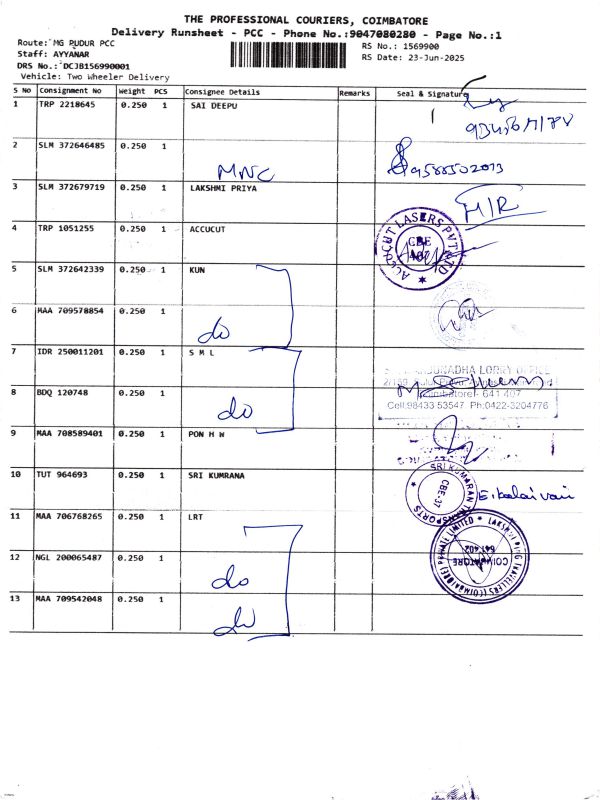 THE PROFESSIONAL COURIERS, COIMBATORE
Delivery Runsheet - PCC - Phone No.:9047080280 - Page No.:1
Route: MG PUDUR PCC
RS No.: 1569900
Staff: AYYANAR
RS Date: 23-Jun-2025
DRS No.: DCJB156990001
Vehicle: Two Wheeler Delivery
S No Consignment No Weight PCS Consignee Details Remarks Seal & Signature
1 TRP 2218645 0.250 1 SAI DEEPU
2 SLM 372646485 0.250 1
MNC
9588502073
3 SLM 372679719 0.250 1 LAKSHMI PRIYA
M/R
4 TRP 1051255 0.250 1 ACCUCUT
ACCUCUT LASERS PVT LTD
CBE
407
5 SLM 372642339 0.250 1 KUN
6 MAA 709578854 0.250 1
do
7 IDR 250011201 0.250 1 S M L
LORRY OFFICE
8 BDQ 120748 0.250 1
do
Coimbatore - 641 407
Cell:98433 53547 Ph:0422-3204776
9 MAA 708589401 0.250 1 PON H W
10 TUT 964693 0.250 1 SRI KUMRANA
SRI KUMARAN TRANSPORTS
CBE-37
E. kalai vani
11 MAA 706768265 0.250 1 LRT
12 NGL 200065487 0.250 1
do
641 402
COIMBATORE
13 MAA 709542048 0.250 1
do